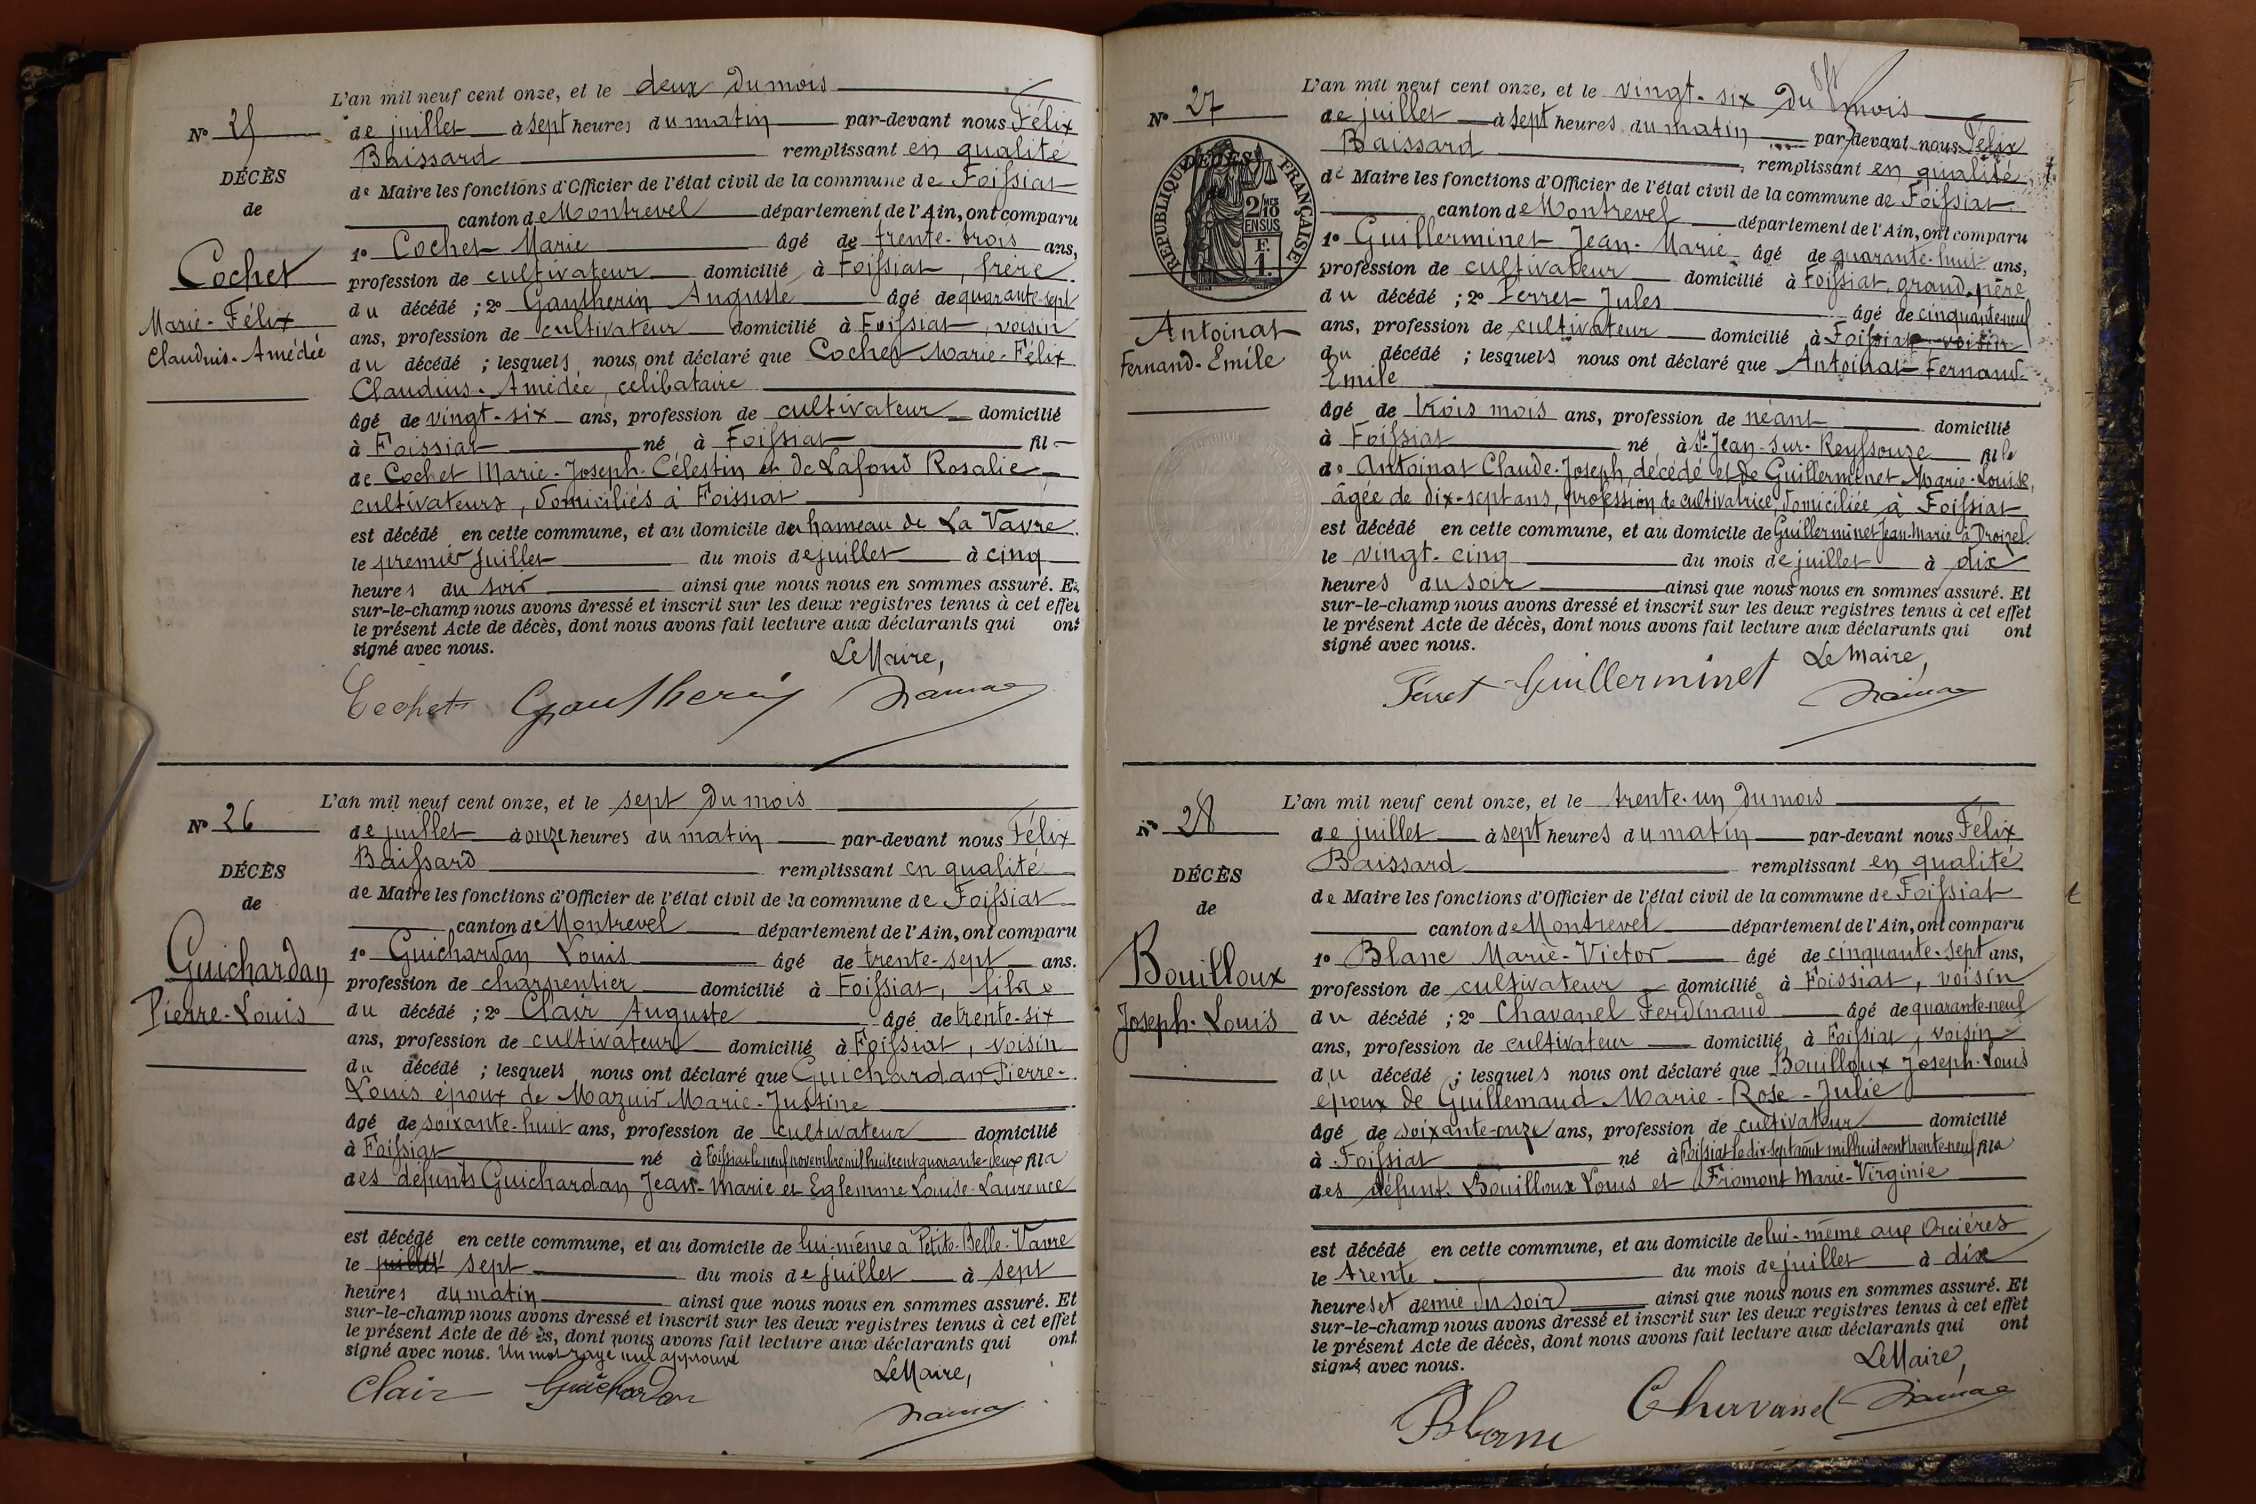 L'an mil neuf cent onze, et le deux du mois
N° 25
de juillet à sept heures du matin par-devant nous Félix
Baissard remplissant en qualité
DÉCÈS
de Maire les fonctions d'Officier de l'état civil de la commune de Foissiat
de
canton de Montrevel département de l'Ain, ont comparu
Cochet
1° Cochet Marie âgé de trente-trois ans,
profession de cultivateur domicilié à Foissiat, frère
Marie-Félix
du décédé ; 2° Gautherin Auguste âgé de quarante-sept
Claudius-Amédée
ans, profession de cultivateur domicilié à Foissiat, voisin
du décédé ; lesquels nous ont déclaré que Cochet Marie-Félix
Claudius-Amédée, célibataire
âgé de vingt-six ans, profession de cultivateur domicilié
à Foissiat né à Foissiat fil
de Cochet Marie-Joseph-Célestin et de Lafond Rosalie
cultivateurs, domiciliés à Foissiat
est décédé en cette commune, et au domicile du hameau de La Vavre
le premier juillet du mois de juillet à cinq
heures du soir ainsi que nous nous en sommes assuré. Et
sur-le-champ nous avons dressé et inscrit sur les deux registres tenus à cet effet
le présent Acte de décès, dont nous avons fait lecture aux déclarants qui ont
signé avec nous.
Le Maire,
Cochet Gautherin
L'an mil neuf cent onze, et le sept du mois
N° 26
de juillet à onze heures du matin par-devant nous Félix
Baissard remplissant en qualité
DÉCÈS
de Maire les fonctions d'Officier de l'état civil de la commune de Foissiat
de
canton de Montrevel département de l'Ain, ont comparu
Guichardan
1° Guichardan Louis âgé de trente-sept ans.
profession de charpentier domicilié à Foissiat, fils
Pierre-Louis
du décédé ; 2° Clair Auguste âgé de trente-six
ans, profession de cultivateur domicilié à Foissiat, voisin
du décédé ; lesquels nous ont déclaré que Guichardan Pierre-
Louis époux de Mazuir Marie-Justine
âgé de soixante-huit ans, profession de cultivateur domicilié
à Foissiat né à Foissiat le neuf novembre mil huit cent quarante-deux fils
des défunts Guichardan Jean-Marie et Eglemme Louise-Laurence
est décédé en cette commune, et au domicile de lui-même à Petite-Belle-Vavre
le juillet sept du mois de juillet à sept
heures du matin ainsi que nous nous en sommes assuré. Et
sur-le-champ nous avons dressé et inscrit sur les deux registres tenus à cet effet
le présent Acte de décès, dont nous avons fait lecture aux déclarants qui ont
signé avec nous. Un mot rayé nul approuvé
Le Maire,
Clair Guichardan
L'an mil neuf cent onze, et le vingt-six du mois
N° 27
de juillet à sept heures du matin par-devant nous Félix
Baissard remplissant en qualité
RÉPUBLIQUE FRANÇAISE
2/10 EN SUS
F. 1.
de Maire les fonctions d'Officier de l'état civil de la commune de Foissiat
canton de Montrevel département de l'Ain, ont comparu
1° Guillerminet Jean-Marie âgé de quarante-huit ans,
profession de cultivateur domicilié à Foissiat, grand-père
du décédé ; 2° Ferret Jules âgé de cinquante-neuf
Antoinat
ans, profession de cultivateur domicilié à Foissiat voisin
Fernand-Emile
du décédé ; lesquels nous ont déclaré que Antoinat Fernand-
Emile
âgé de trois mois ans, profession de néant domicilié
à Foissiat né à St-Jean-sur-Reyssouze fils
de Antoinat Claude-Joseph, décédé et de Guillerminet Marie-Louise,
âgée de dix-sept ans, profession de cultivatrice, domiciliée à Foissiat
est décédé en cette commune, et au domicile de Guillerminet Jean-Marie à Droizel
le vingt-cinq du mois de juillet à dix
heures du soir ainsi que nous nous en sommes assuré. Et
sur-le-champ nous avons dressé et inscrit sur les deux registres tenus à cet effet
le présent Acte de décès, dont nous avons fait lecture aux déclarants qui ont
signé avec nous.
Le Maire,
Ferret Guillerminet
L'an mil neuf cent onze, et le trente-un du mois
N° 28
de juillet à sept heures du matin par-devant nous Félix
Baissard remplissant en qualité
DÉCÈS
de Maire les fonctions d'Officier de l'état civil de la commune de Foissiat
de
canton de Montrevel département de l'Ain, ont comparu
Bouilloux
1° Blanc Marie-Victor âgé de cinquante-sept ans,
profession de cultivateur domicilié à Foissiat, voisin
Joseph-Louis
du décédé ; 2° Chavanel Ferdinand âgé de quarante-neuf
ans, profession de cultivateur domicilié à Foissiat, voisin
du décédé ; lesquels nous ont déclaré que Bouilloux Joseph-Louis
époux de Guillemaud Marie-Rose-Julie
âgé de soixante-onze ans, profession de cultivateur domicilié
à Foissiat né à Foissiat le dix-sept août mil huit cent trente-neuf fils
des défunts Bouilloux Louis et Fromont Marie-Virginie
est décédé en cette commune, et au domicile de lui-même aux Orcières
le trente du mois de juillet à dix
heures et demie du soir ainsi que nous nous en sommes assuré. Et
sur-le-champ nous avons dressé et inscrit sur les deux registres tenus à cet effet
le présent Acte de décès, dont nous avons fait lecture aux déclarants qui ont
signé avec nous.
Le Maire,
Blanc Chavanel